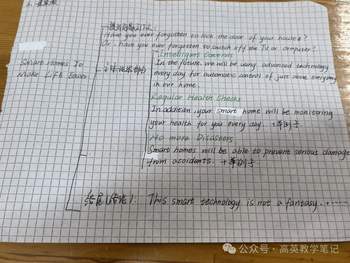 Have you ever forgotten to lock the door of your house?
Or, have you ever forgotten to switch off the TV or computer?
Smart Homes To
Make Life Easier
Intelligent Controls
In the future, we will be using advanced technology
every day for automatic control of just about everything
in our home.
Regular Health Checks
In addition, your smart home will be monitoring
your health for you every day. +举例子
No more Disasters
Smart homes will be able to prevent serious damage
from accidents. +举例子
结尾(结论): This smart technology is not a fantasy. +......
公众号·高英教学笔记